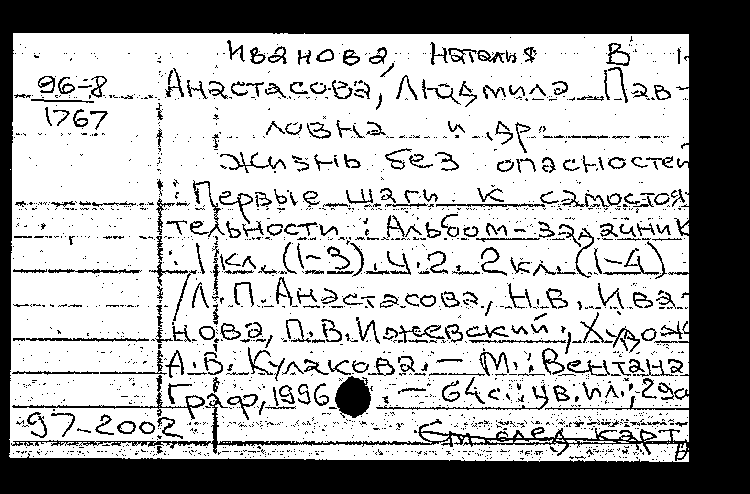 Иванова, Наталья В
96-8
1767
Анастасова, Людмила Пав-
ловна и др.
Жизнь без опасностей
: Первые шаги к самостоя
тельности : Альбом-задачник
: 1 кл. (1-3). Ч.2. 2 кл. (1-4)
/Л.П.Анастасова, Н.В. Ива-
нова, П.В.Ижевский; Худож
А.В. Кулакова. - М.: Вентана
Граф, 1996. - 64 с.: цв.ил.; 29
97-2002
след карт